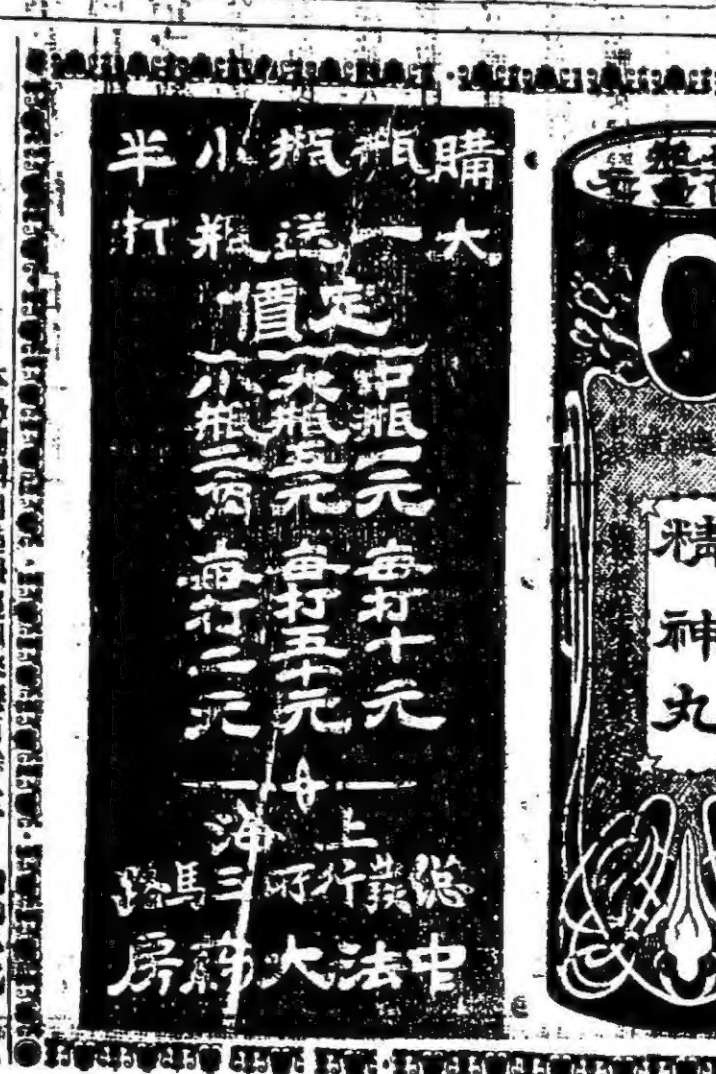 購大
瓶一
瓶送
小瓶
半打
定價
中瓶一元 每打十元
大瓶五元 每打五十元
小瓶二角 每打二元
上海
總發行所三馬路
中法大藥房
精神丸